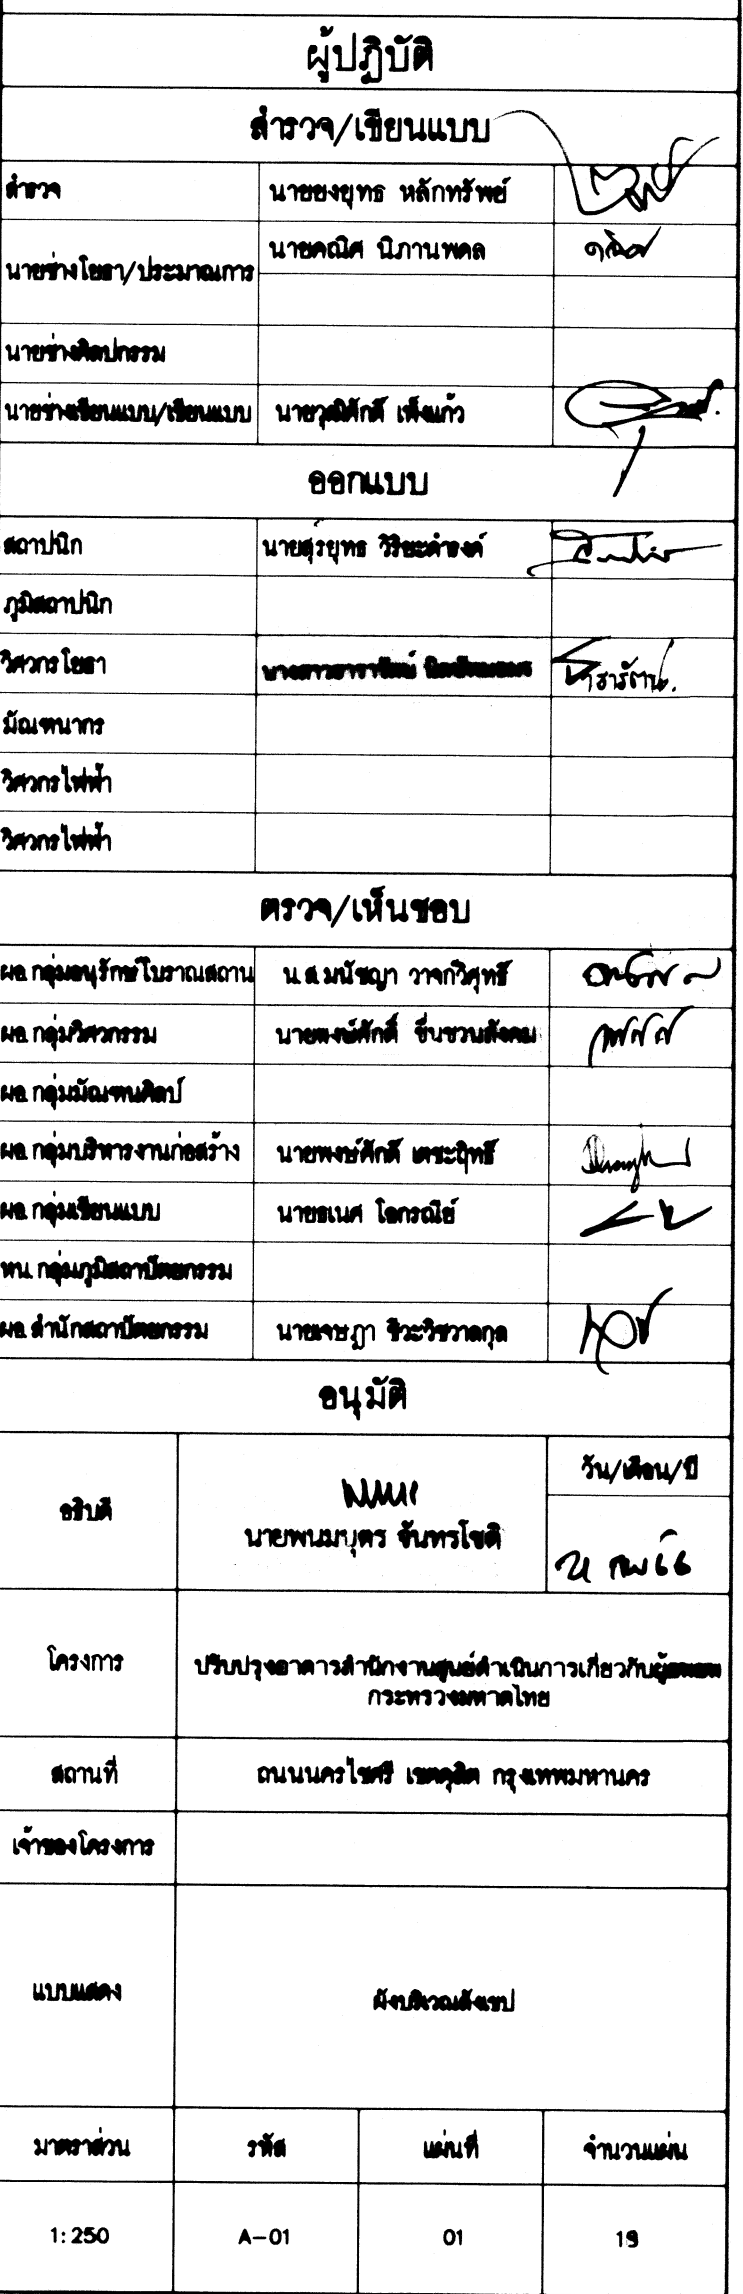 ผู้ปฏิบัติ
สำรวจ/เขียนแบบ
สำรวจ นายยงยุทธ หลักทรัพย์
นายช่างโยธา/ประมาณการ นายคณิศ นิภานพดล
นายช่างศิลปกรรม
นายช่างเขียนแบบ/เขียนแบบ นายวุฒิศักดิ์ เพ็งแก้ว
ออกแบบ
สถาปนิก นายสุรยุทธ วิริยะดำรงค์
ภูมิสถาปนิก
วิศวกรโยธา
มัณฑนากร
วิศวกรไฟฟ้า
วิศวกรไฟฟ้า
ตรวจ/เห็นชอบ
ผอ.กลุ่มอนุรักษ์โบราณสถาน น.ส.มนัชญา วาจก์วิศุทธิ์
ผอ.กลุ่มวิศวกรรม นายพงษ์ศักดิ์ ชื่นชวนสังคม
ผอ.กลุ่มมัณฑนศิลป์
ผอ.กลุ่มบริหารงานก่อสร้าง นายพงษ์ศักดิ์ เตชะฤิทธิ์
ผอ.กลุ่มเขียนแบบ นายธเนศ โฉกรณีย์
หน.กลุ่มภูมิสถาปัตยกรรม
ผอ.สำนักสถาปัตยกรรม นายเจษฎา ชีวะวิชวาลกุล
อนุมัติ
อธิบดี นายพนมบุตร จันทรโชติ วัน/เดือน/ปี
21 กพ 66
โครงการ ปรับปรุงอาคารสำนักงานศูนย์ดำเนินการเกี่ยวกับผู้อพยพ
กระทรวงมหาดไทย
สถานที่ ถนนนครไชศรี เขตดุสิต กรุงเทพมหานคร
เจ้าของโครงการ
แบบแสดง ผังบริเวณสังเขป
มาตราส่วน รหัส แผ่นที่ จำนวนแผ่น
1:250 A-01 01 19